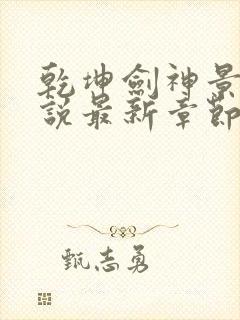 乾坤劍神景
說最新章節
甄志勇